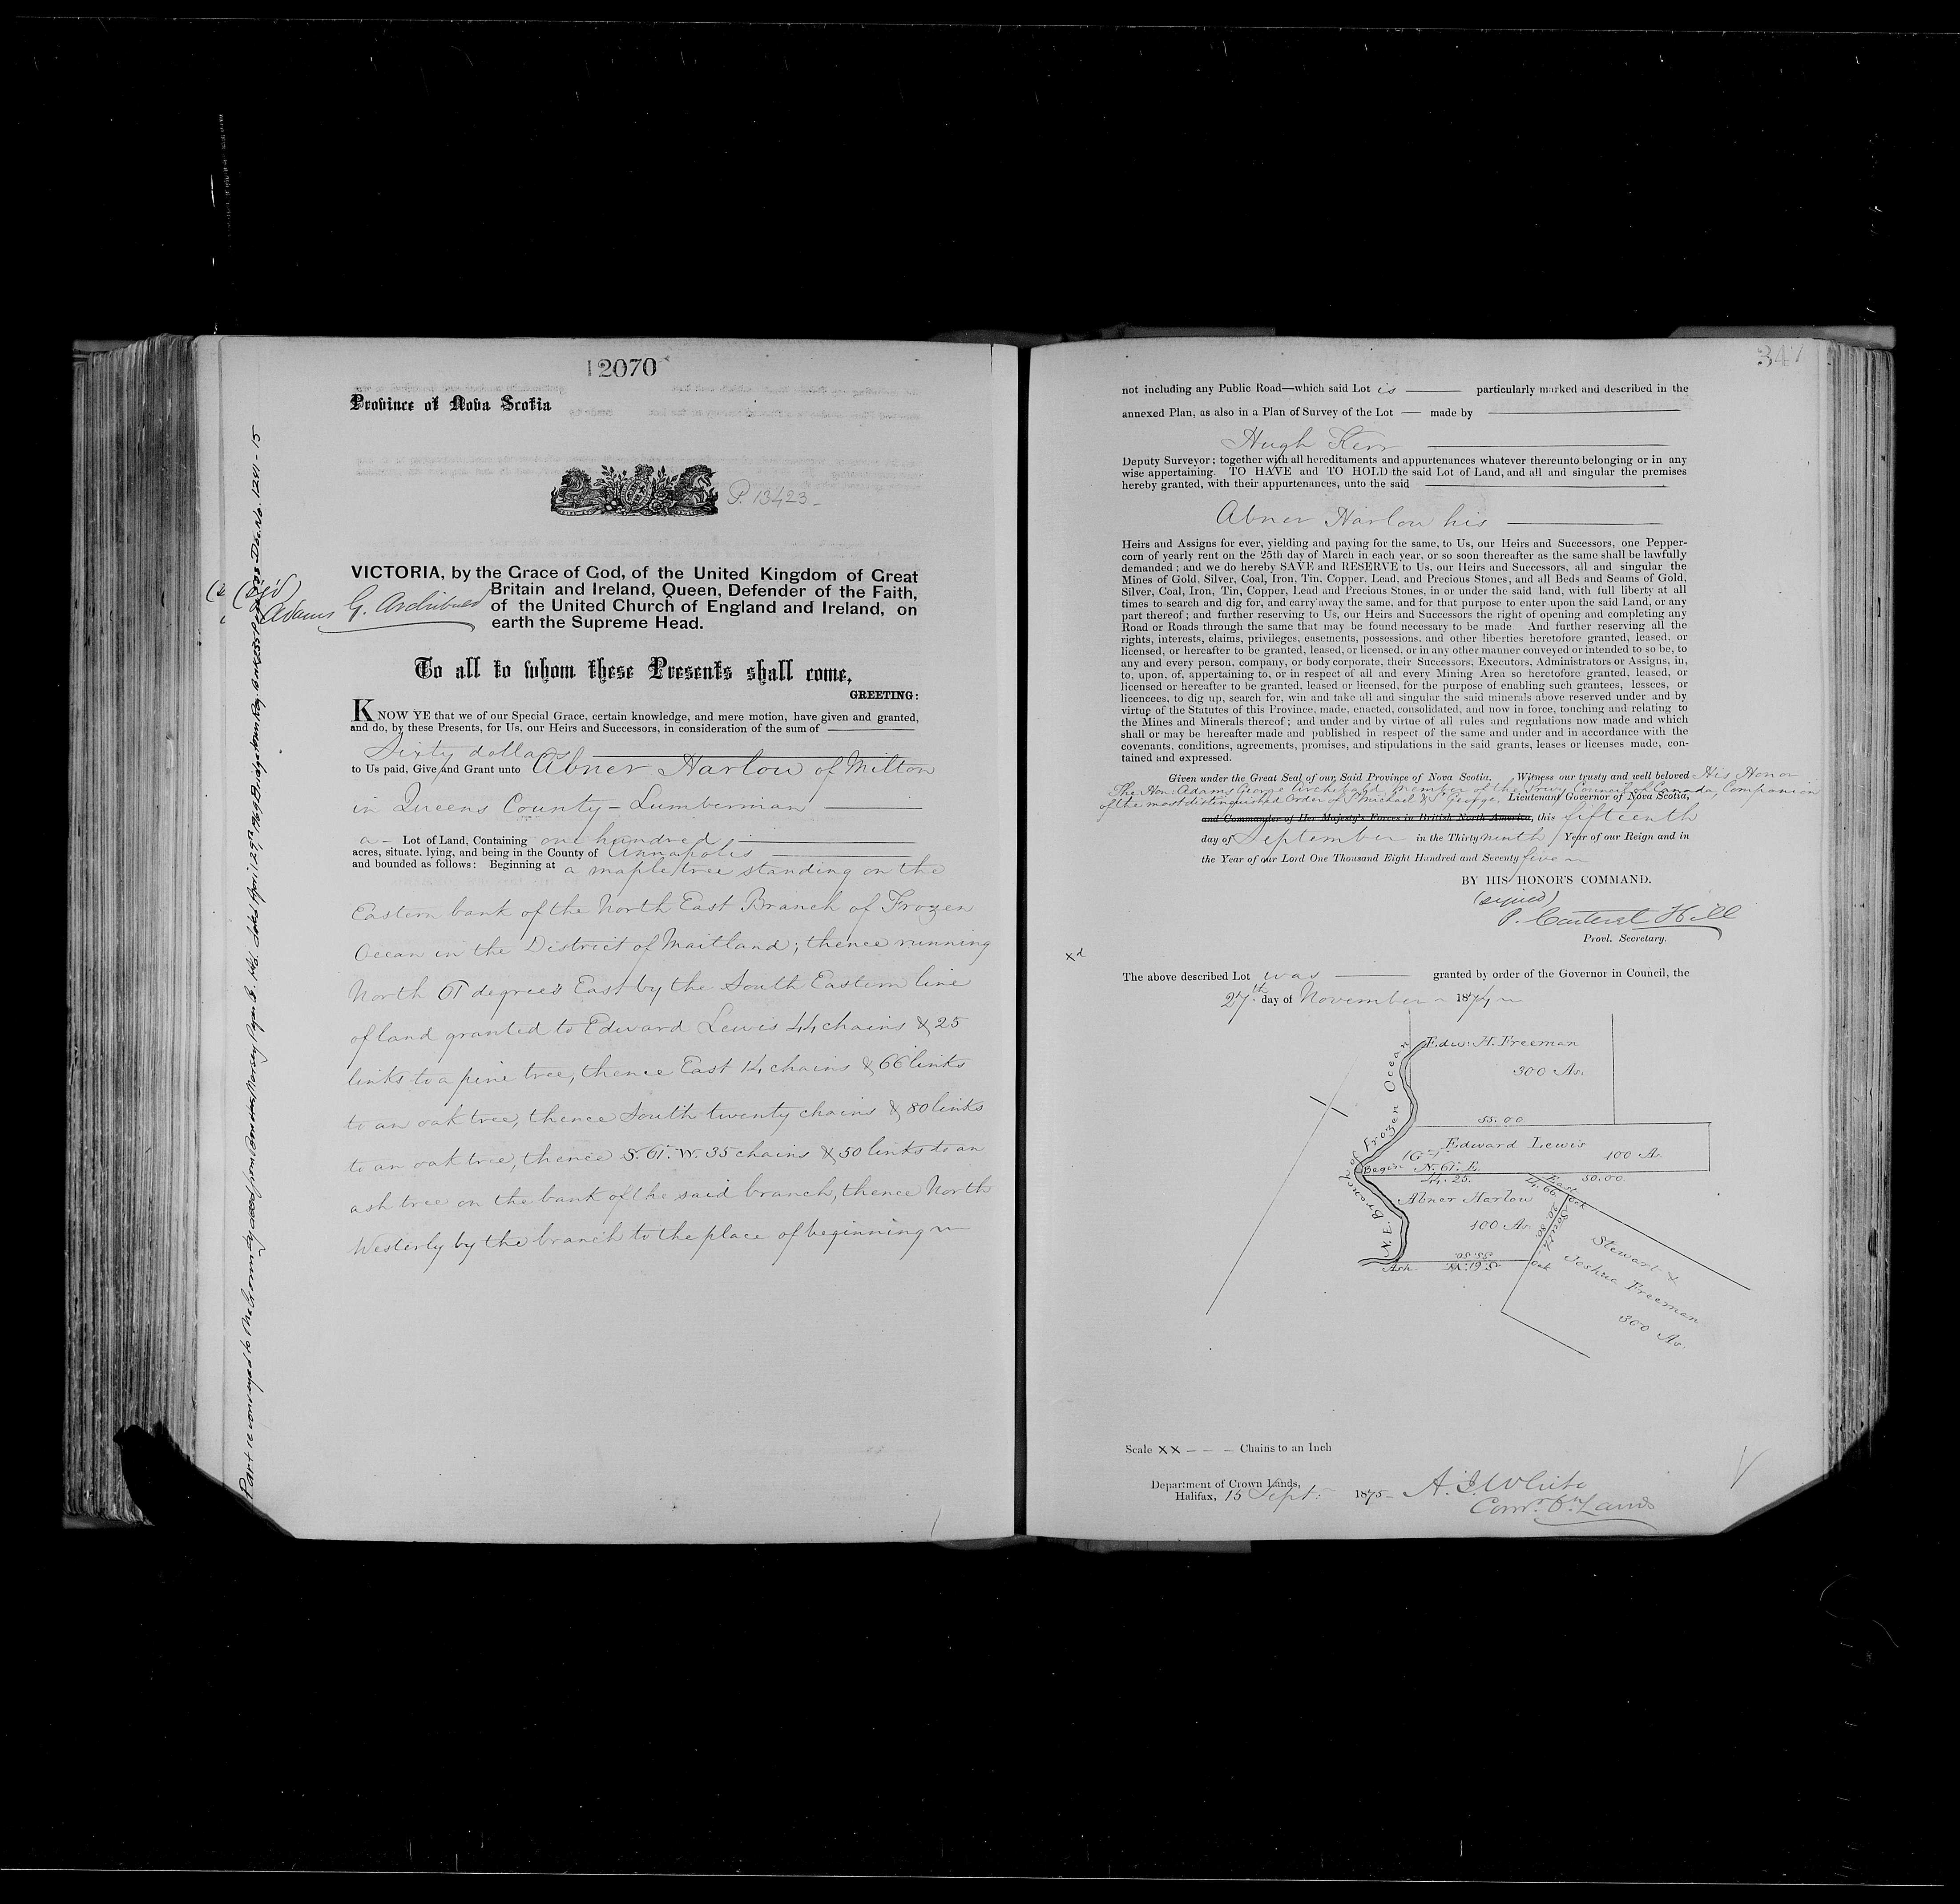 12070
Province of Nova Scotia
P. 13423
VICTORIA, by the Grace of God, of the United Kingdom of Great
Britain and Ireland, Queen, Defender of the Faith,
of the United Church of England and Ireland, on
earth the Supreme Head.
(sig'd)
Adams G. Archibald
To all to whom these Presents shall come,
GREETING:
KNOW YE that we of our Special Grace, certain knowledge, and mere motion, have given and granted,
and do, by these Presents, for Us, our Heirs and Successors, in consideration of the sum of
Sixty dollars
to Us paid, Give and Grant unto Abner Harlow of Milton
in Queens County - Lumberman
a - Lot of Land, Containing one hundred
acres, situate, lying, and being in the County of Annapolis
and bounded as follows: Beginning at a maple tree standing on the
Eastern bank of the North East Branch of Frozen
Ocean in the District of Maitland; thence running
North 61 degrees East by the South Eastern line
of land granted to Edward Lewis 44 chains & 25
links to a pine tree, thence East 14 chains & 66 links
to an oak tree, thence South twenty chains & 80 links
to an oak tree, thence S. 61° W. 35 chains & 50 links to an
ash tree on the bank of the said branch, thence North
Westerly by the branch to the place of beginning
Part re conveyed to the Crown by deed from Bowater Mersey Paper Co. Ltd. dated April 29th
347
not including any Public Road—which said Lot is particularly marked and described in the
annexed Plan, as also in a Plan of Survey of the Lot — made by
Hugh Kerr
Deputy Surveyor; together with all hereditaments and appurtenances whatever thereunto belonging or in any
wise appertaining. TO HAVE and TO HOLD the said Lot of Land, and all and singular the premises
hereby granted, with their appurtenances, unto the said
Abner Harlow his
Heirs and Assigns for ever, yielding and paying for the same, to Us, our Heirs and Successors, one Pepper-
corn of yearly rent on the 25th day of March in each year, or so soon thereafter as the same shall be lawfully
demanded; and we do hereby SAVE and RESERVE to Us, our Heirs and Successors, all and singular the
Mines of Gold, Silver, Coal, Iron, Tin, Copper, Lead, and Precious Stones, and all Beds and Seams of Gold,
Silver, Coal, Iron, Tin, Copper, Lead and Precious Stones, in or under the said land, with full liberty at all
times to search and dig for, and carry away the same, and for that purpose to enter upon the said Land, or any
part thereof; and further reserving to Us, our Heirs and Successors the right of opening and completing any
Road or Roads through the same that may be found necessary to be made And further reserving all the
rights, interests, claims, privileges, easements, possessions, and other liberties heretofore granted, leased, or
licensed, or hereafter to be granted, leased, or licensed, or in any other manner conveyed or intended to so be, to
any and every person, company, or body corporate, their Successors, Executors, Administrators or Assigns, in,
to, upon, of, appertaining to, or in respect of all and every Mining Area so heretofore granted, leased, or
licensed or hereafter to be granted, leased or licensed, for the purpose of enabling such grantees, lessees, or
licencees, to dig up, search for, win and take all and singular the said minerals above reserved under and by
virtue of the Statutes of this Province, made, enacted, consolidated, and now in force, touching and relating to
the Mines and Minerals thereof; and under and by virtue of all rules and regulations now made and which
shall or may be hereafter made and published in respect of the same and under and in accordance with the
covenants, conditions, agreements, promises, and stipulations in the said grants, leases or licenses made, con-
tained and expressed.
Given under the Great Seal of our Said Province of Nova Scotia. Witness our trusty and well beloved His Honor
The Hon: Adams George Archibald, Member of the Privy Council of Canada, Companion
of the most distinguished Order of St Michael & St George, Lieutenant Governor of Nova Scotia,
and Commander of Her Majesty's Forces in British North America, this fifteenth
day of September in the Thirty ninth Year of our Reign and in
the Year of our Lord One Thousand Eight Hundred and Seventy five
BY HIS HONOR'S COMMAND.
(signed)
P. Carteret Hill
Provl. Secretary.
xd
The above described Lot was granted by order of the Governor in Council, the
27th day of November 1874
Edw: H. Freeman
300 As.
55.00
Edward Lewis
100 A.
Begin N. 61° E.
44. 25.
50.00.
N. E. Branch of Frozen Ocean
Abner Harlow
100 As.
East
14. 66.
Oak
South
20. 80.
35.50.
S. 61° W.
Ash
Oak
Stewart &
Joshua Freeman
300 As.
Scale XX — — — Chains to an Inch
Department of Crown Lands,
Halifax, 15 Sept. 1875
A. J. White
Comr. Cn. Lands